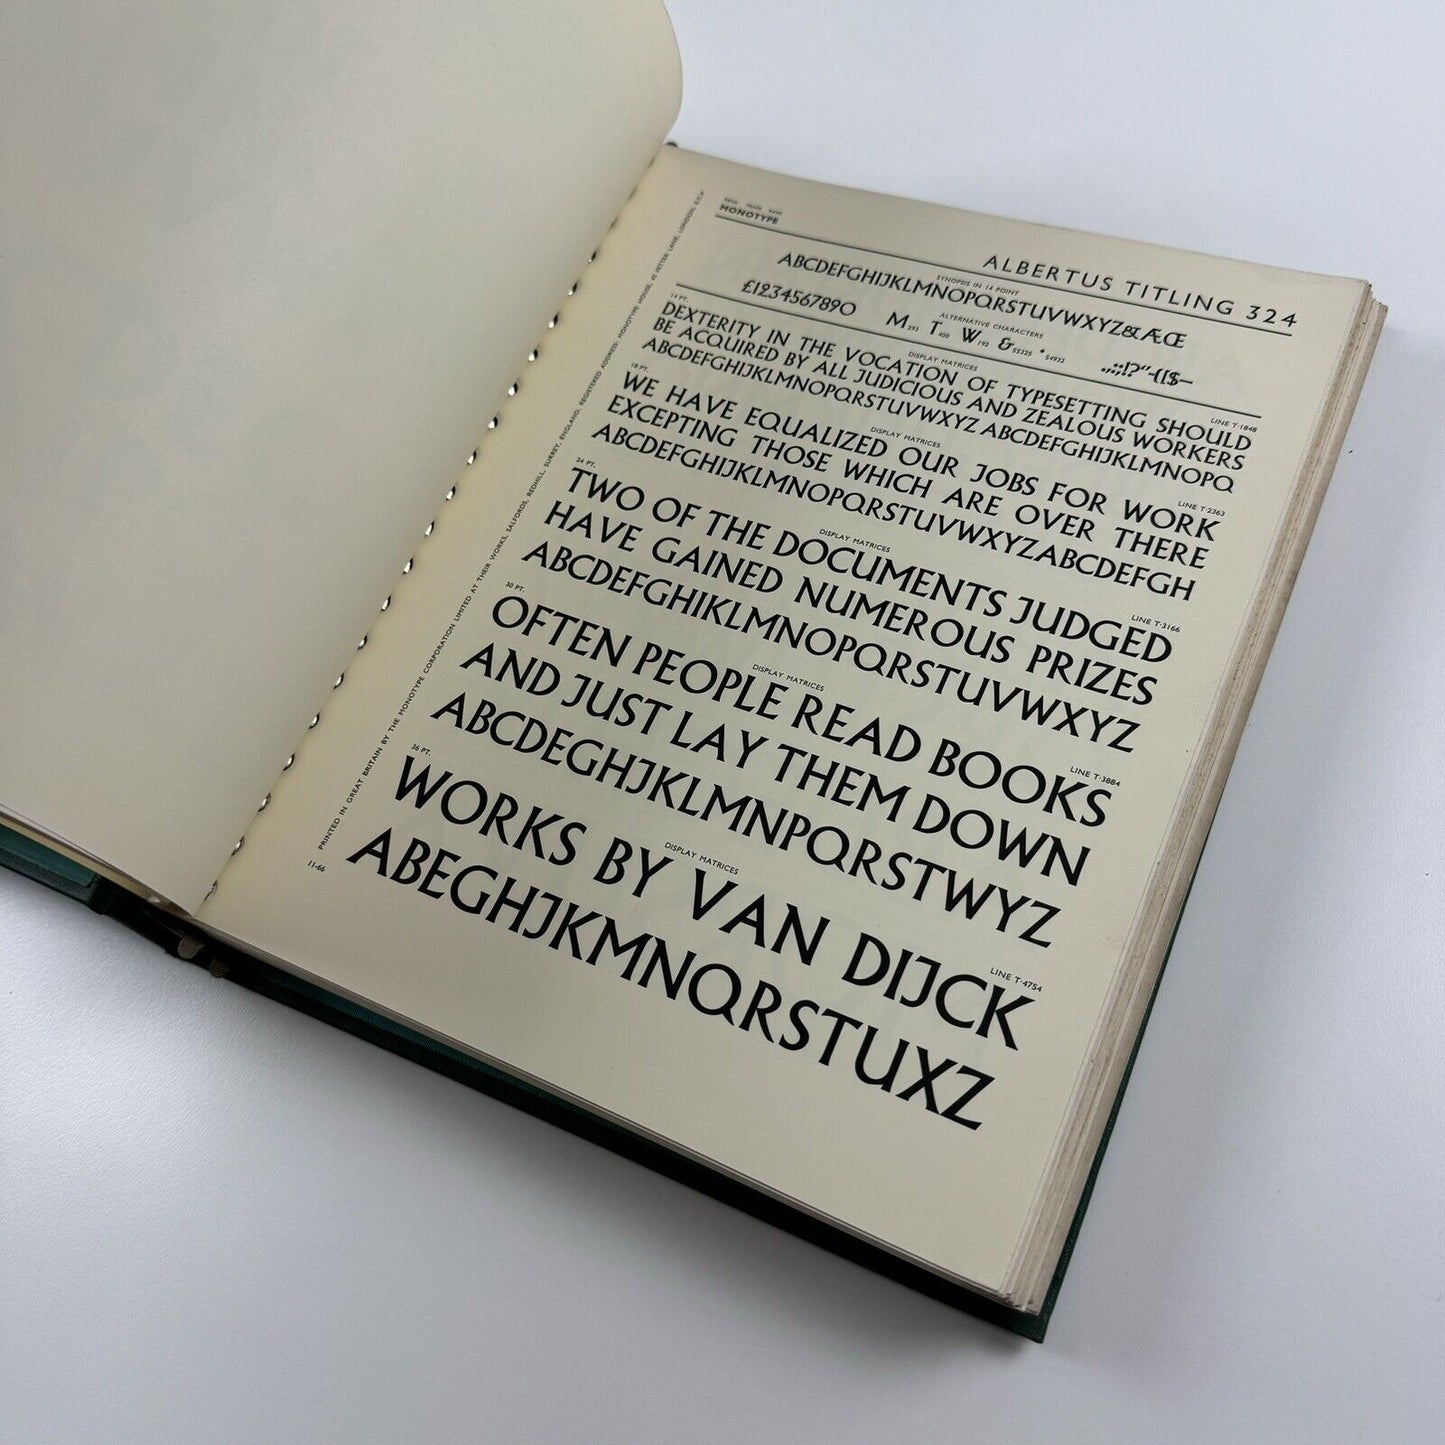 REGD. TRADE MARK
MONOTYPE
ALBERTUS TITLING 324
SYNOPSIS IN 14 POINT
ABCDEFGHIJKLMNOPQRSTUVWXYZ&ÆŒ
ALTERNATIVE CHARACTERS
£1234567890 M393 T400 W192 &55325 *54932 .,·:;!?‘’-([$—
14 PT. DISPLAY MATRICES LINE T·1848
DEXTERITY IN THE VOCATION OF TYPESETTING SHOULD
BE ACQUIRED BY ALL JUDICIOUS AND ZEALOUS WORKERS
ABCDEFGHIJKLMNOPQRSTUVWXYZ ABCDEFGHIJKLMNOPQ
18 PT. DISPLAY MATRICES LINE T·2363
WE HAVE EQUALIZED OUR JOBS FOR WORK
EXCEPTING THOSE WHICH ARE OVER THERE
ABCDEFGHIJKLMNOPQRSTUVWXYZABCDEFGH
24 PT. DISPLAY MATRICES LINE T·3166
TWO OF THE DOCUMENTS JUDGED
HAVE GAINED NUMEROUS PRIZES
ABCDEFGHIKLMNOPQRSTUVWXYZ
30 PT. DISPLAY MATRICES LINE T·3884
OFTEN PEOPLE READ BOOKS
AND JUST LAY THEM DOWN
ABCDEGHJKLMNPQRSTWYZ
36 PT. DISPLAY MATRICES LINE T·4754
WORKS BY VAN DIJCK
ABEGHJKMNQRSTUXZ
PRINTED IN GREAT BRITAIN BY THE MONOTYPE CORPORATION LIMITED AT THEIR WORKS, SALFORDS, REDHILL, SURREY, ENGLAND. REGISTERED ADDRESS: MONOTYPE HOUSE, 43 FETTER LANE, LONDON, E.C.4
11-66